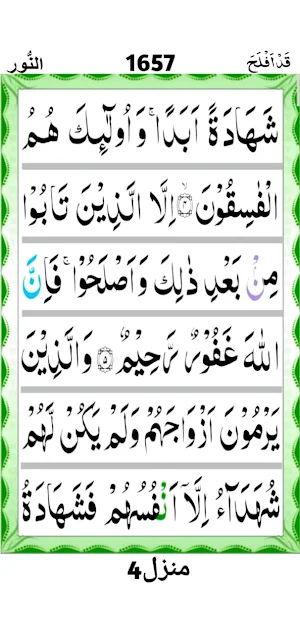 قَدْ اَفْلَحَ 1657 النُّور
شَهَادَةً اَبَدًا ۚ وَ اُولٰٓئِكَ هُمُ
الْفٰسِقُوْنَ ۙ﴿۴﴾ اِلَّا الَّذِيْنَ تَابُوْا
مِنْۢ بَعْدِ ذٰلِكَ وَ اَصْلَحُوْا ۚ فَاِنَّ
اللّٰهَ غَفُوْرٌ رَّحِيْمٌ ﴿۵﴾ وَ الَّذِيْنَ
يَرْمُوْنَ اَزْوَاجَهُمْ وَ لَمْ يَكُنْ لَّهُمْ
شُهَدَآءُ اِلَّاۤ اَنْفُسُهُمْ فَشَهَادَةُ
منزل4